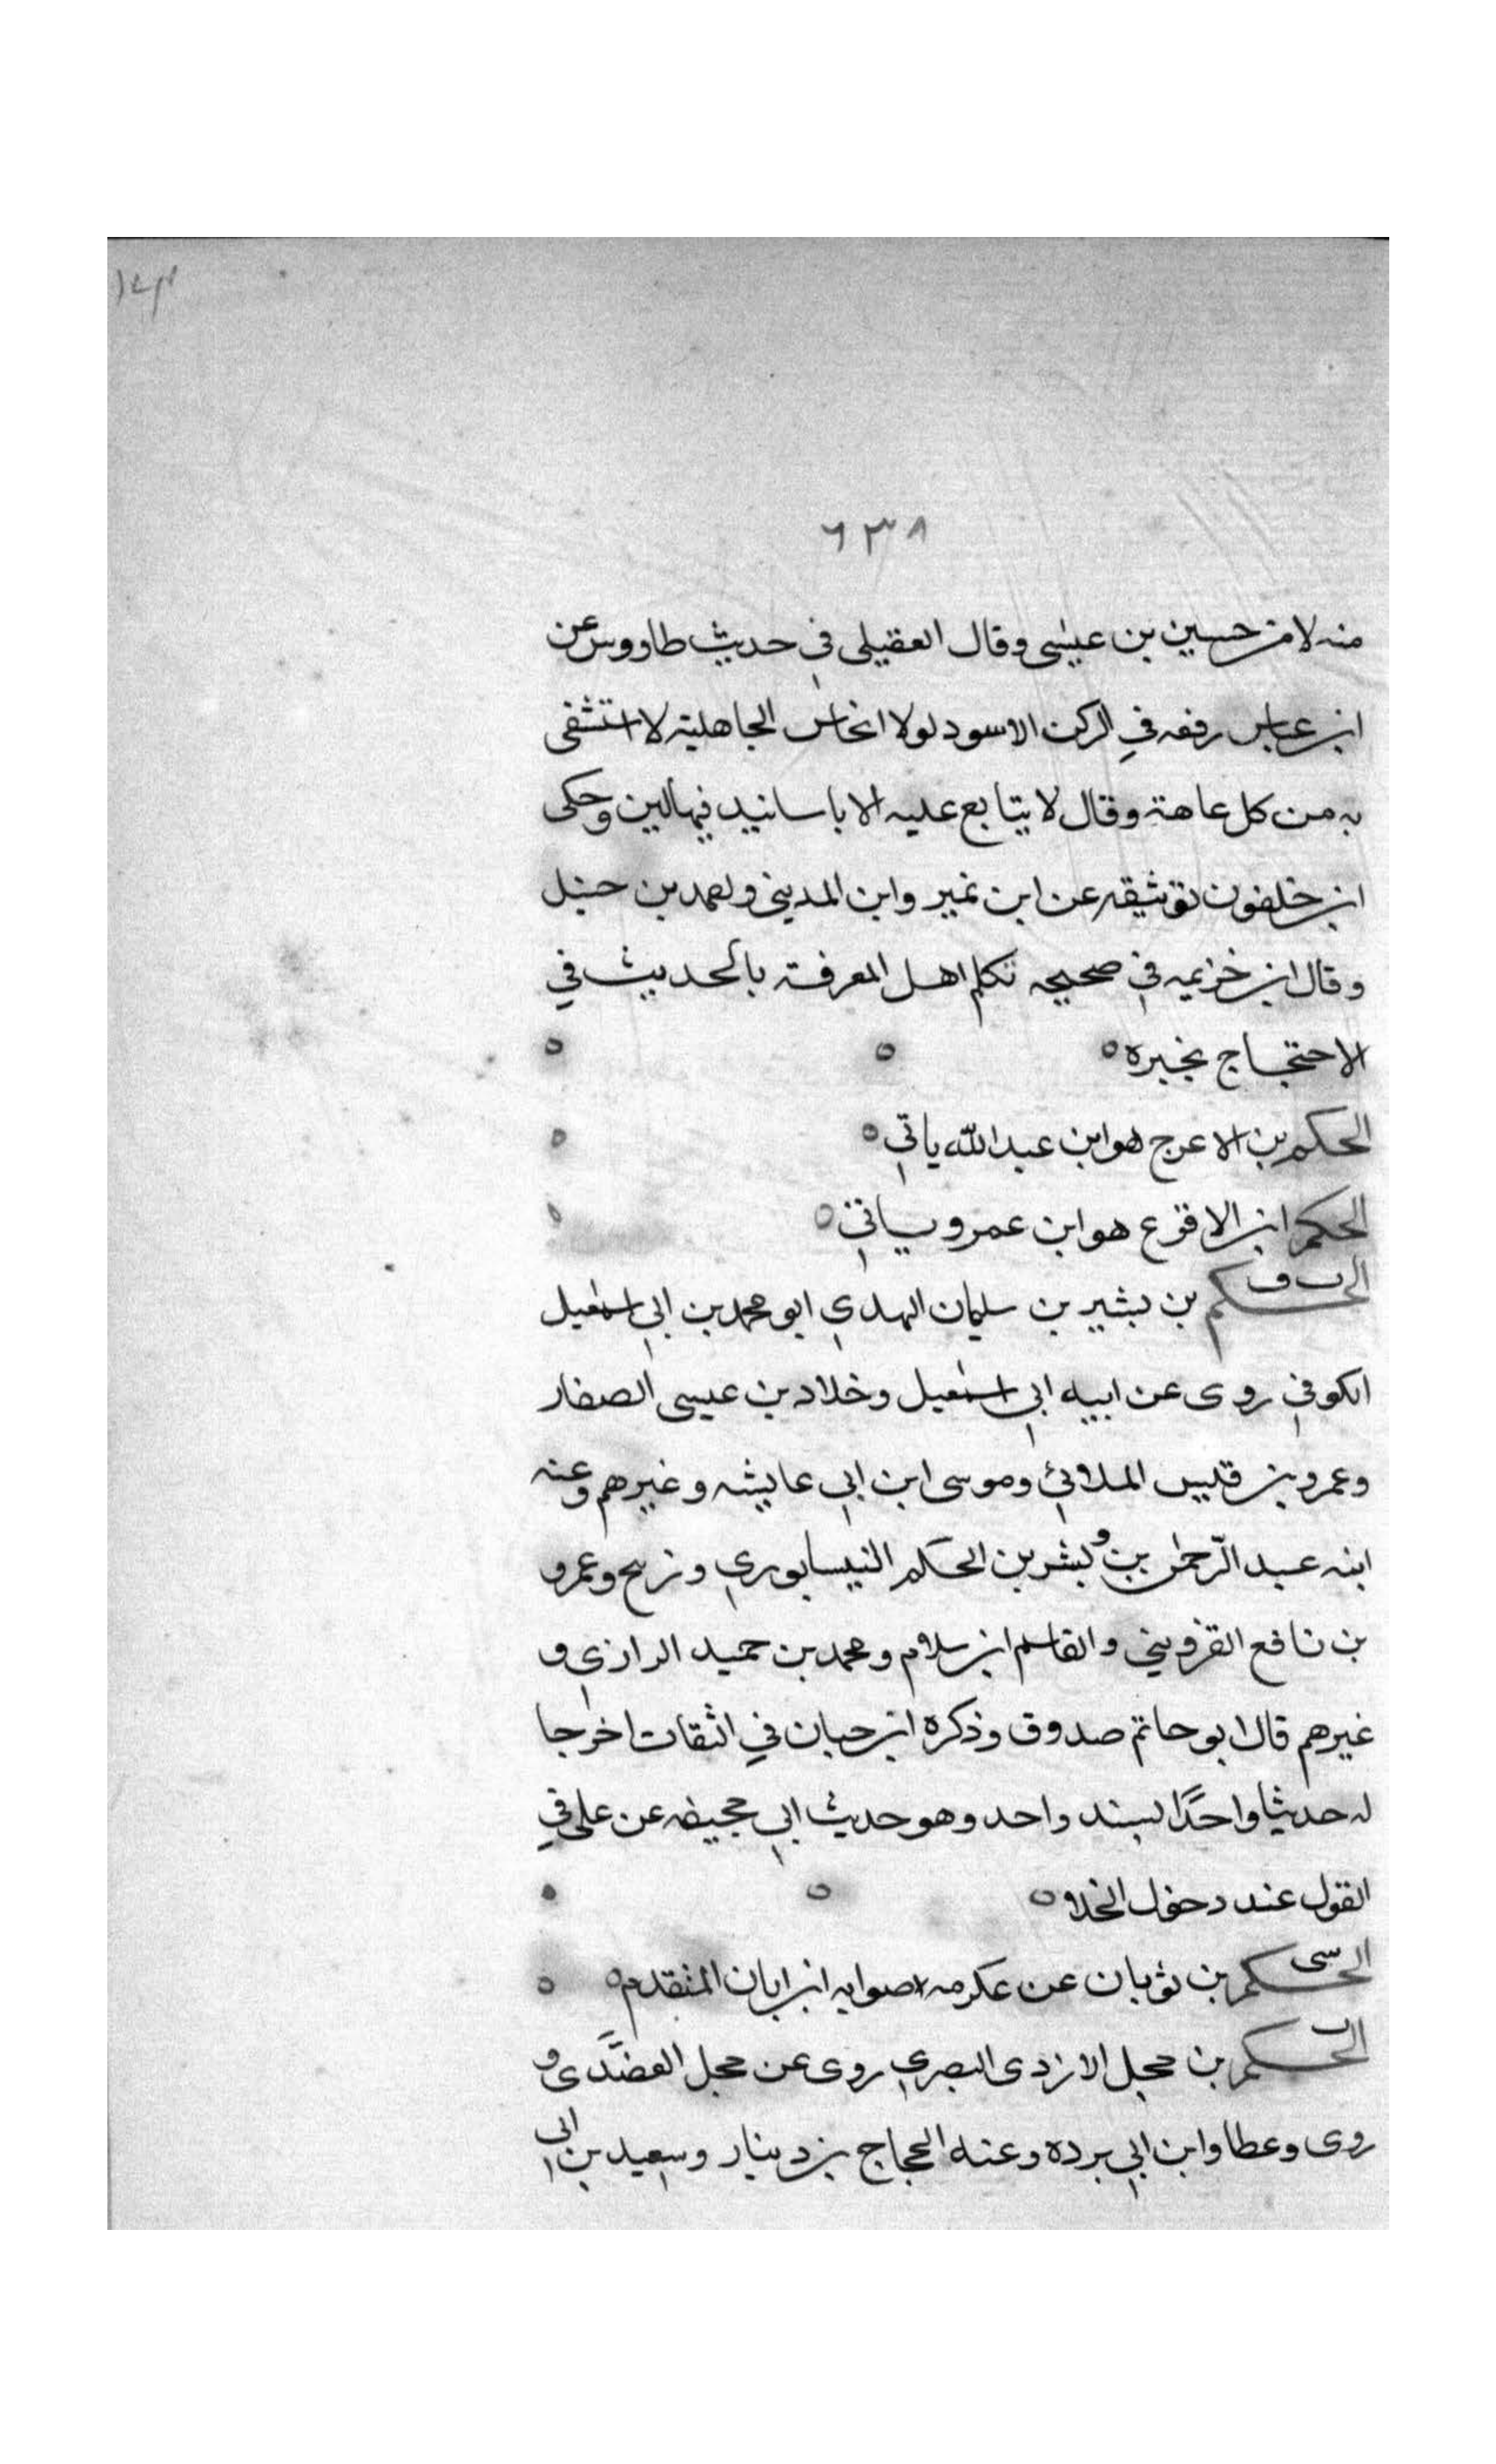 ٦٣٨
منه لا من حسين بن عيسى وقال العقيلي في حديث طاووس عن
ابن عباس رفعه في الركن الاسود لولا انجاس الجاهلية لاستشفى
به من كل عاهة وقال لا يتابع عليه الا باسانيد فيها لين وحكى
ابن خلفون توثيقه عن ابن نمير وابن المديني واحمد بن حنبل
وقال ابن خزيمه في صحيحه تكلم اهل المعرفة بالحديث في
الاحتجاج بخبره
الحكم بن الاعرج هو ابن عبد الله ياتي
الحكم ابن الاقرع هو ابن عمرو سياتي
الحكم بن بشير بن سليمان النهدي ابو محمد بن ابي اسمعيل
الكوفي روى عن ابيه ابي اسمعيل وخلاد بن عيسى الصفار
وعمرو بن قيس الملائي وموسى ابن ابي عايشه وغيرهم وعنه
ابنه عبد الرحمن بن وبشر بن الحكم النيسابوري وزنيج وعمرو
بن نافع القزويني والقاسم ابن سلام ومحمد بن حميد الرازي و
غيرهم قال ابو حاتم صدوق وذكره ابن حبان في الثقات اخرجا
له حديثا واحدًا بسند واحد وهو حديث ابي جحيفه عن علي في
القول عند دخول الخلا
الحكم بن ثوبان عن عكرمه صوابه ابن ابان المتقدم
الحكم بن حجل الازدي البصري روى عن حجل العضَّدى و
روى وعطا وابن ابي برده وعنه الحجاج بن دينار وسعيد بن ابي